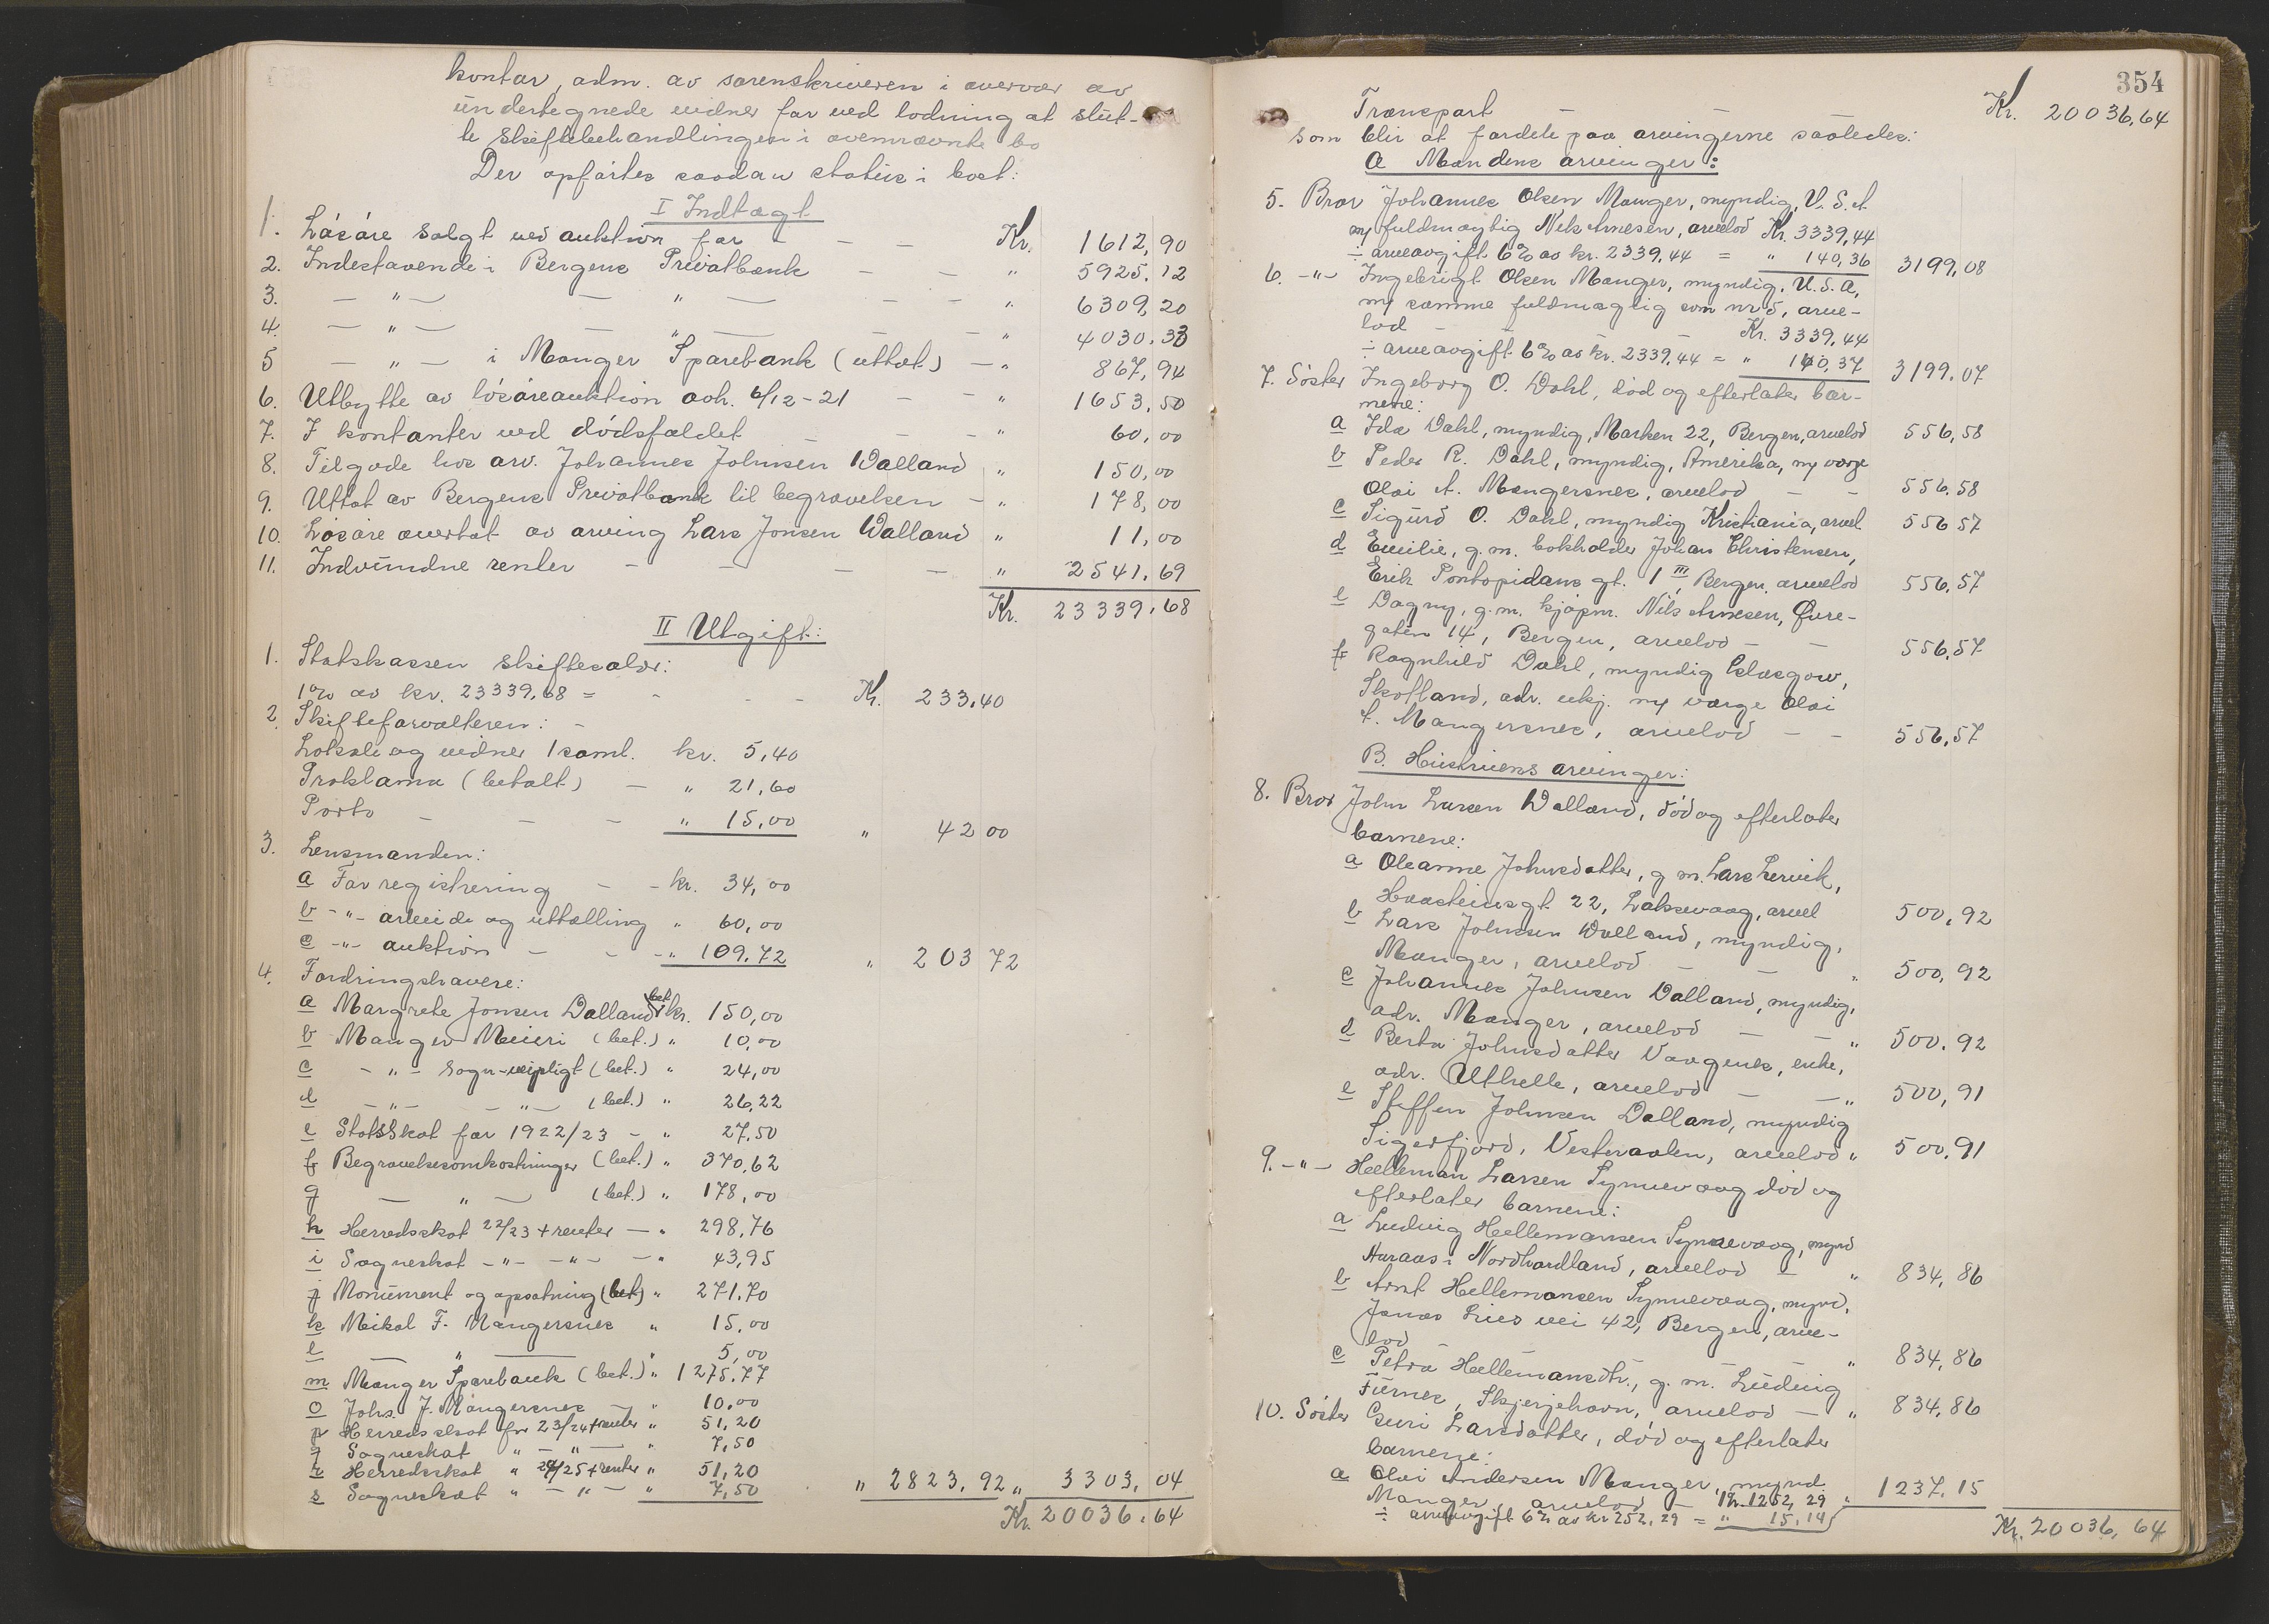 kontor, adm. av sorenskriveren i overvær av
undertegnede vidner for ved lodning at slut-
te skiftebehandlingen i ovennævnte bo
Der opførtes saadan status i boet:
I Indtægt
1. Løsøre solgt ved auktion for - - - Kr. 1612,90
2. Indestaaende i Bergens Privatbank - - " 5925,12
3. - " - - " - - - " 6309,20
4. - " - - " - - - " 4030,33
5 - " - i Manger Sparebank (uttat) - " 867,94
6. Utbytte av løsøreauktion avh. 6/12-21 - - " 1653,50
7. I kontanter ved dødsfaldet - - - " 60,00
8. Tilgode hos arv. Johannes Johnsen Dalland " 150,00
9. Uttat av Bergens Privatbank til begravelsen - " 178,00
10. Løsøre overtat av arving Lars Jonsen Dalland " 11,00
11. Indvundne renter - - - - " 2541,69
Kr. 23339,68
II Utgift:
1. Statskassen skiftesalær:
1% av kr. 23339,68 = - - - Kr. 233,40
2. Skifteforvalteren: -
Lokale og vidner 1 saml. kr. 5,40
Proklama (betalt) - " 21,60
Porto - - - " 15,00 " 42 00
3. Lensmanden:
a For registrering - - kr. 34,00
b - " - arbeide og uttælling " 60,00
c - " - auktion - - - " 109,72 " 203 72
4. Fordringshavere:
a Margrete Jonsen Dalland bet. kr. 150,00
b Manger Meieri (bet.) " 10,00
c - " - sogn-veipligt (bet.) " 24,00
d - " - - " - (bet.) " 26,22
e Statsskat for 1922/23 - " 27,50
f Begravelsesomkostninger (bet.) " 370,62
g - " - (bet.) " 178,00
h Herredsskat 22/23 + renter - " 298,76
i Sogneskat - " - - " - - " 43,95
j Monument og opsætning (bet) " 271,70
k Mikal F. Mangersnes " 15,00
l - " - " 5,00
m Manger Sparebank (bet.) " 1275,77
o Johs. J. Mangersnes - " 10,00
p Herredsskat for 23/24 + renter " 51,20
q Sogneskat " - " - " 7,50
r Herredsskat " 24/25 + renter " 51,20
s Sogneskat " - " - " 7,50 " 2823,92 " 3303,04
Kr. 20036,64
354
Transport - - Kr. 20036,64
som blir at fordele paa arvingerne saaledes:
A Mandens arvinger:
5. Bror Johannes Olsen Manger, myndig, U.S.A.
ny fuldmægtig Nils Arnesen, arvelod Kr. 3339,44
÷ arveavgift 6% av kr. 2339,44 = " 140,36 3199,08
6. - " - Ingebrigt Olsen Manger, myndig, U.S.A,
ny samme fuldmægtig som nr 5, arve-
lod - - - Kr. 3339,44
÷ arveavgift 6% av kr. 2339,44 = " 140,37 3199,07
7. Søster Ingeborg O. Dahl, død og efterlater bar-
nene:
a Ida Dahl, myndig, Marken 22, Bergen, arvelod 556,58
b Peder R. Dahl, myndig, Amerika, ny værge
Olai A. Mangersnes, arvelod - - 556,58
c Sigurd O. Dahl, myndig Kristiania, arvel. 556 57
d Emilie, g.m. bokholder Johan Christensen,
Erik Pontopidans gt. 1 III, Bergen, arvelod 556,57
e Dagny, g.m. kjøpm. Nils Arnesen, Øvre-
gaten 14, Bergen, arvelod - - 556,57
f Ragnhild Dahl, myndig Glasgow,
Skotland, adr. ukj. ny værge Olai
A. Mangersnes, arvelod - - 556,57
B. Hustruens arvinger:
8. Bror John Larsen Dalland, død og efterlater
barnene:
a Oleanne Johnsdatter, g m. Lars Lervik,
Haasteinsgt. 22, Laksevaag, arvel 500,92
b Lars Johnsen Dalland, myndig,
Manger, arvelod - - " 500,92
c Johannes Johnsen Dalland, myndig,
adr. Manger, arvelod - - " 500,92
d Berta Johnsdatter Vaagenes, enke,
adr. Uthelle, arvelod - - " 500,91
e Steffen Johnsen Dalland, myndig
Sigerfjord, Vesteraalen, arvelod " 500,91
9. - " - Helleman Larsen Synnevaag død og
efterlater barnene:
a Ludvig Hellemansen Synnevaag, mynd
Auraas i Nordhordland, arvelod - " 834,86
b Arnt Hellemansen Synnevaag, mynd,
Jonas Lies vei 42, Bergen, arve-
lod - - - " 834,86
c Petra Hellemansdtr., g. m. Ludvig
Furnes, Skjerjehavn, arvelod - " 834,86
10. Søster Guri Larsdatter, død og efterlater
barnene:
a Olai Andersen Manger, mynd.
Manger, arvelod - Kr. 1252,29 " 1237,15
÷ arveavgift 6% av kr 252,29 = " 15,14
Kr. 20036,64